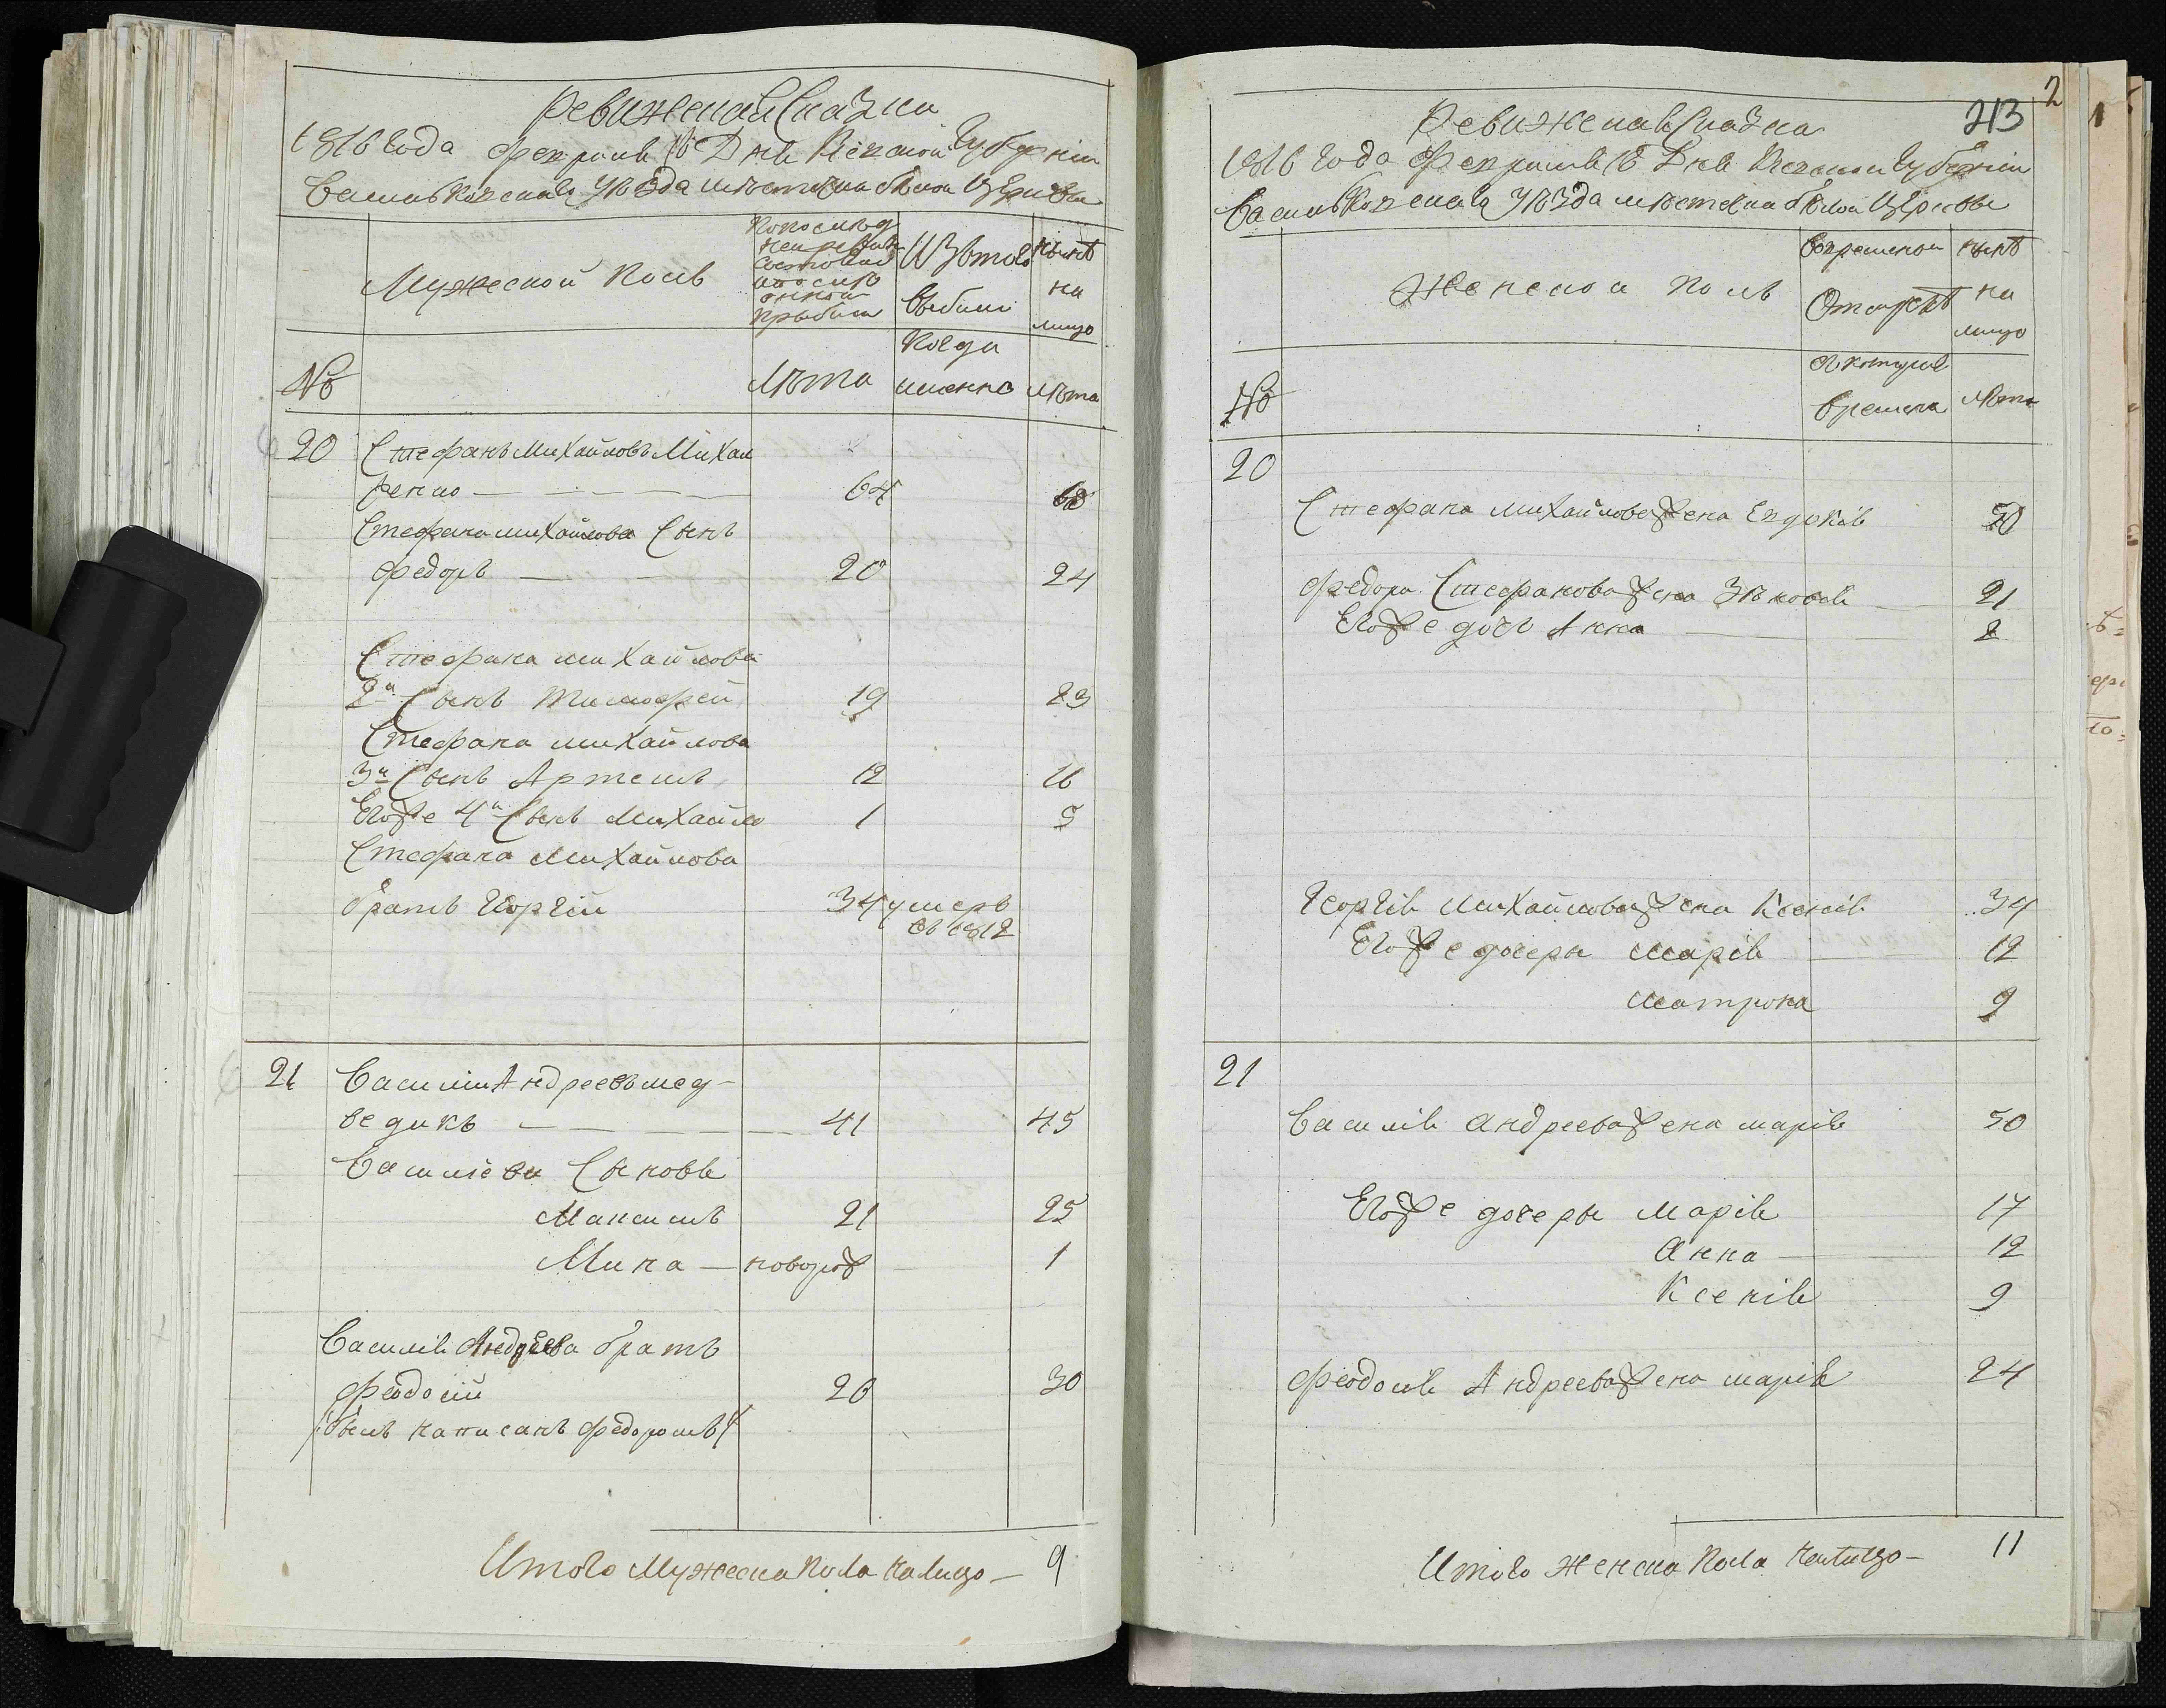 Ревижская Сказка
1816 Года Февраля 16 Дня Кіевской Губерніи
Васильковскаго Уезда местечка белой Церкви
Мужеской Полъ
По последней ревизіи состояло и после оной прибыло
Изъ того выбыло
ныне на лицо
№
Лета
Когда именно
Лета
20 Стефанъ Михайловъ Михай
ренко 64 68
Стефана михайлова Сынъ
Федоръ 20 24
Стефана михайлова
2й Сынъ Тимофей 19 23
Стефана михайлова
3й Сынъ Артемъ 12 16
Егоже 4й Сынъ Михайло 1 5
Стефана Михайлова
братъ Георгій 34 умеръ
въ 1812
21 Василій Андреевъ мед-
ведикъ 41 45
Васильева Сыновья
Максимъ 21 25
Мина новорож 1
Василія Андреева братъ
Феодосій 26 30
былъ написанъ Федоромъ
Итого Мужеска Пола налицо — 9
2
213
Ревижская Сказка
1816 Года Февраля 16 Дня Кіевской Губерніи
Васильковскаго Уезда местечка белой Церкви
Женской полъ
Во временной Отлучке
ныне на лицо
№
Съ котораго времени
Лета
20
Стефана михайлова жена Евдокія 50
Федора Стефанова жена Зеновія 21
Егоже дочь Анна 2
Георгія Михайлова жена Ксенія 34
Егоже дочеры Марія 12
Матрона 9
21
Василія Андреева жена марія 50
Егоже дочеры Марія 17
Анна 12
Ксенія 9
Феодосія Андреева жена марія 24
Итого Женска Пола налицо — 11